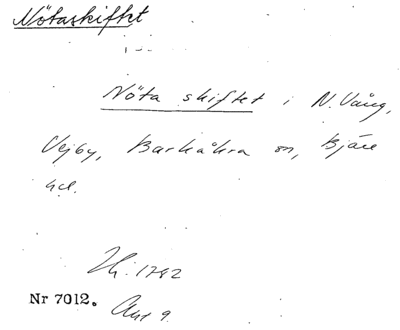 Nötaskiftet
Nöta skiftet i N. Vång,
Vejby, Barkåkra sn, Bjäre
hd.
Lh. 1782
Nr 7012. Akt 9.